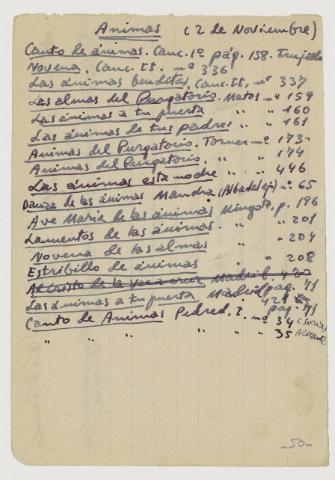 Animas (2 de Noviembre)
Canto de ánimas. Canc. 1º pág. 158. Trujillo
Novena. Canc. tt. nº 336
Las ánimas benditas. Canc. tt. nº 337
Las almas del Purgatorio. Matos nº 159
Las ánimas a tu puerta " " 160
Las ánimas de tus padres " " 161
Animas del Purgatorio. Torner nº 173-
Animas del Purgatorio. " " 174
Las ánimas esta noche " " 446
Danza de las ánimas Mancha (Albadalejo) nº 65
Ave Maria de las ánimas Mingote p. 196
Lamentos de las ánimas. " " 201
Novena de las almas " 204
Estribillo de ánimas " 208
Al Cristo de la Vera cruz Madrid
Las ánimas a tu puerta Madrid pag. 71
Canto de Animas Pedrell. 2. nº 34 (Soria)
" " " " 35 Alicante
-50-